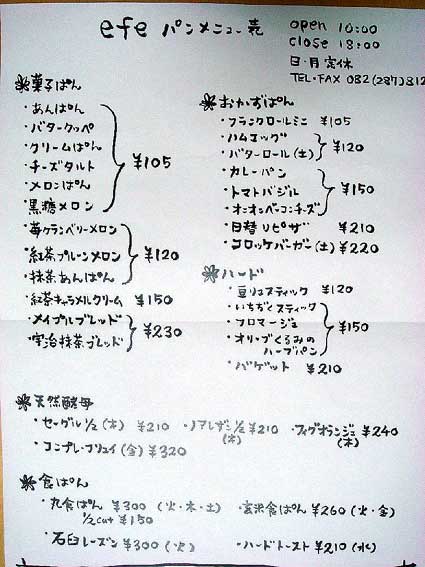 efe パンメニュー表
open 10:00
close 18:00
日・月定休
TEL・FAX 082(287)812
菓子ぱん
・あんぱん
・バタークッペ
・クリームぱん
・チーズタルト
・メロンぱん
・黒糖メロン
¥105
・苺クランベリーメロン
・紅茶プルーンメロン
・抹茶あんぱん
¥120
・紅茶キャラメルクリーム ¥150
・メイプルブレッド
・宇治抹茶ブレッド
¥230
おかずぱん
・フランクロールミニ ¥105
・ハムエッグ
・バターロール(土)
¥120
・カレーパン
・トマトバジル
・オニオンベーコンチーズ
¥150
・日替りピザ ¥210
・コロッケバーガー(土) ¥220
ハード
・豆りこスティック ¥120
・いちぢくスティック
・フロマージュ
・オリーブくるみの
ハーブパン
¥150
・バゲット ¥210
天然酵母
・セーグル1/2(木) ¥210 ・ノアレザン1/2(木) ¥210 ・フィグオランジュ(木) ¥240
・コンプレ・フリュイ(金) ¥320
食ぱん
・丸食ぱん ¥300 (火・木・土) ・玄米食ぱん ¥260 (火・金)
1/2cut ¥150
・石臼レーズン ¥300 (火) ・ハードトースト ¥210 (水)